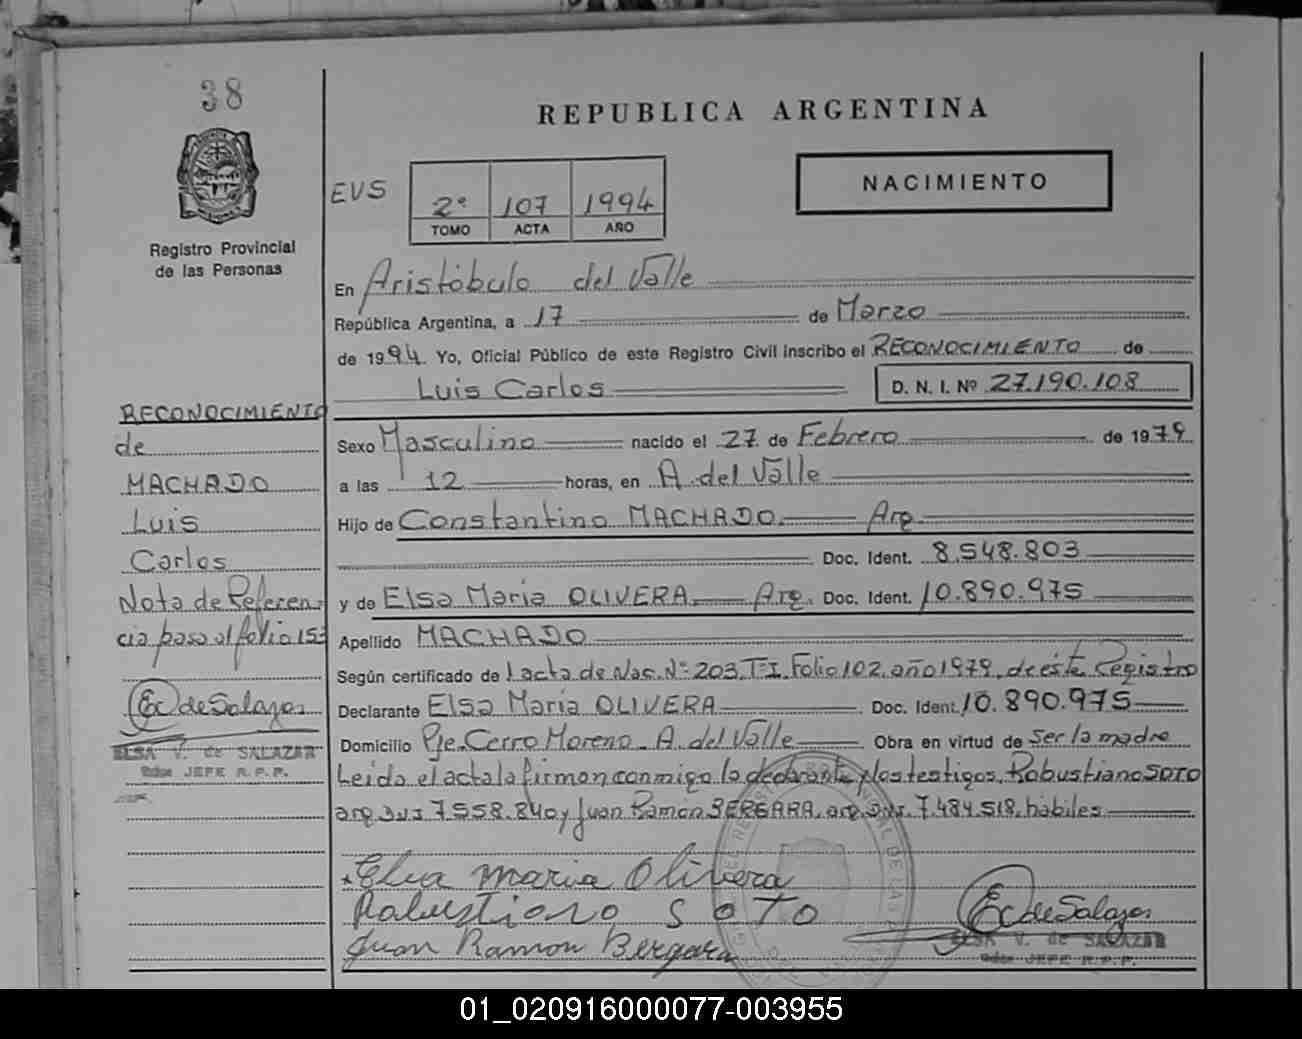 38
REPUBLICA ARGENTINA
NACIMIENTO
EVS
2º 107 1994
TOMO ACTA AÑO
Registro Provincial
de las Personas
En Aristóbulo del Valle
República Argentina, a 17 de Marzo
de 1994. Yo, Oficial Público de este Registro Civil inscribo el RECONOCIMIENTO de
Luis Carlos D. N. I. Nº 27.190.108
RECONOCIMIENTO
de
MACHADO
Luis
Carlos
Nota de Referen-
cia paso al folio 153
Ec de Salazar
ELSA V. de SALAZAR
JEFE R.P.P.
Sexo Masculino nacido el 27 de Febrero de 1979
a las 12 horas, en A. del Valle
Hijo de Constantino MACHADO Arg.
Doc. Ident. 8.548.803
y de ELSA María OLIVERA Arg. Doc. Ident. 10.890.975
Apellido MACHADO
Según certificado de 1 acta de Nac. Nº 203, T-I. Folio 102, año 1979, de éste Registro
Declarante ELSA María OLIVERA Doc. Ident. 10.890.975
Domicilio Pje. Cerro Moreno - A. del Valle Obra en virtud de ser la madre
Leída el acta la firman conmigo la declarante y los testigos, Robustiano SOTO
arg. D.N.I 7.558.840 y Juan Ramón BERGARA, arg. D.N.I. 7.484.518, hábiles
Elsa maria Olivera
Robustiano SOTO
Juan Ramon Bergara
Ec de Salazar
ELSA V. de SALAZAR
JEFE R.P.P.
01_020916000077-003955